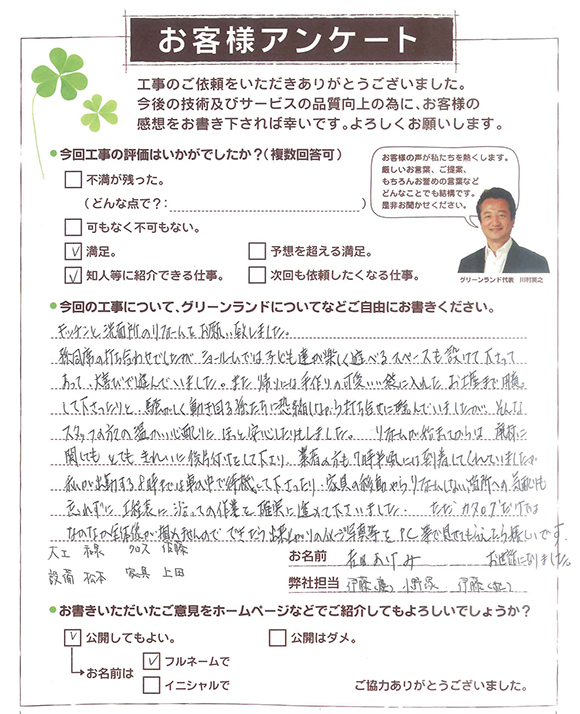 お客様アンケート
工事のご依頼をいただきありがとうございました。
今後の技術及びサービスの品質向上の為に、お客様の
感想をお書き下されば幸いです。よろしくお願いします。
●今回工事の評価はいかがでしたか?(複数回答可)
不満が残った。
(どんな点で?: )
可もなく不可もない。
満足。
予想を超える満足。
知人等に紹介できる仕事。
次回も依頼したくなる仕事。
お客様の声が私たちを熱くします。
厳しいお言葉、ご提案、
もちろんお誉めの言葉など
どんなことでも結構です。
是非お聞かせください。
グリーンランド代表 川村
●今回の工事について、グリーンランドについてなどご自由にお書きください。
キッチンと洗面所のリフォームをお願い致しました。
孫同席の打ち合わせでしたが ショールームでは子ども達が楽しく遊べるスペースも設けて下さって
あって、大喜びで遊んでいました。また帰りには手作りの可愛い袋に入れたお土産まで用意
して下さったりと、騒がしく動き回る孫たちに恐縮しながら打ち合せに臨んでいましたが、そんな
スタッフの方の温かい心配りに ほっと安心したりもしました。 リフォームが始まってからは
関しても とてもきれいに後片付けをして下さり、業者の方も7時半頃には到着してくれていましたが
私が出勤する8時までは車の中で待機して下さったり、家具の移動やらリフォームしない箇所への気配りも
忘れずに 工程表に沿っての作業を確実に進めて下さいました。 ただ カタログだけでは
なかなか全体像が掴めませんので できたら 仕上がりの 写真等をPC等で見せてもらえたら嬉しいです。
大工 クロス 佐藤
設備 松本 家具 上田
お名前 あけみ お世話になりました。
弊社担当 伊藤 小野 伊藤
●お書きいただいたご意見をホームページなどでご紹介してもよろしいでしょうか?
公開してもよい。
公開はダメ。
お名前は
フルネームで
イニシャルで
ご協力ありがとうございました。